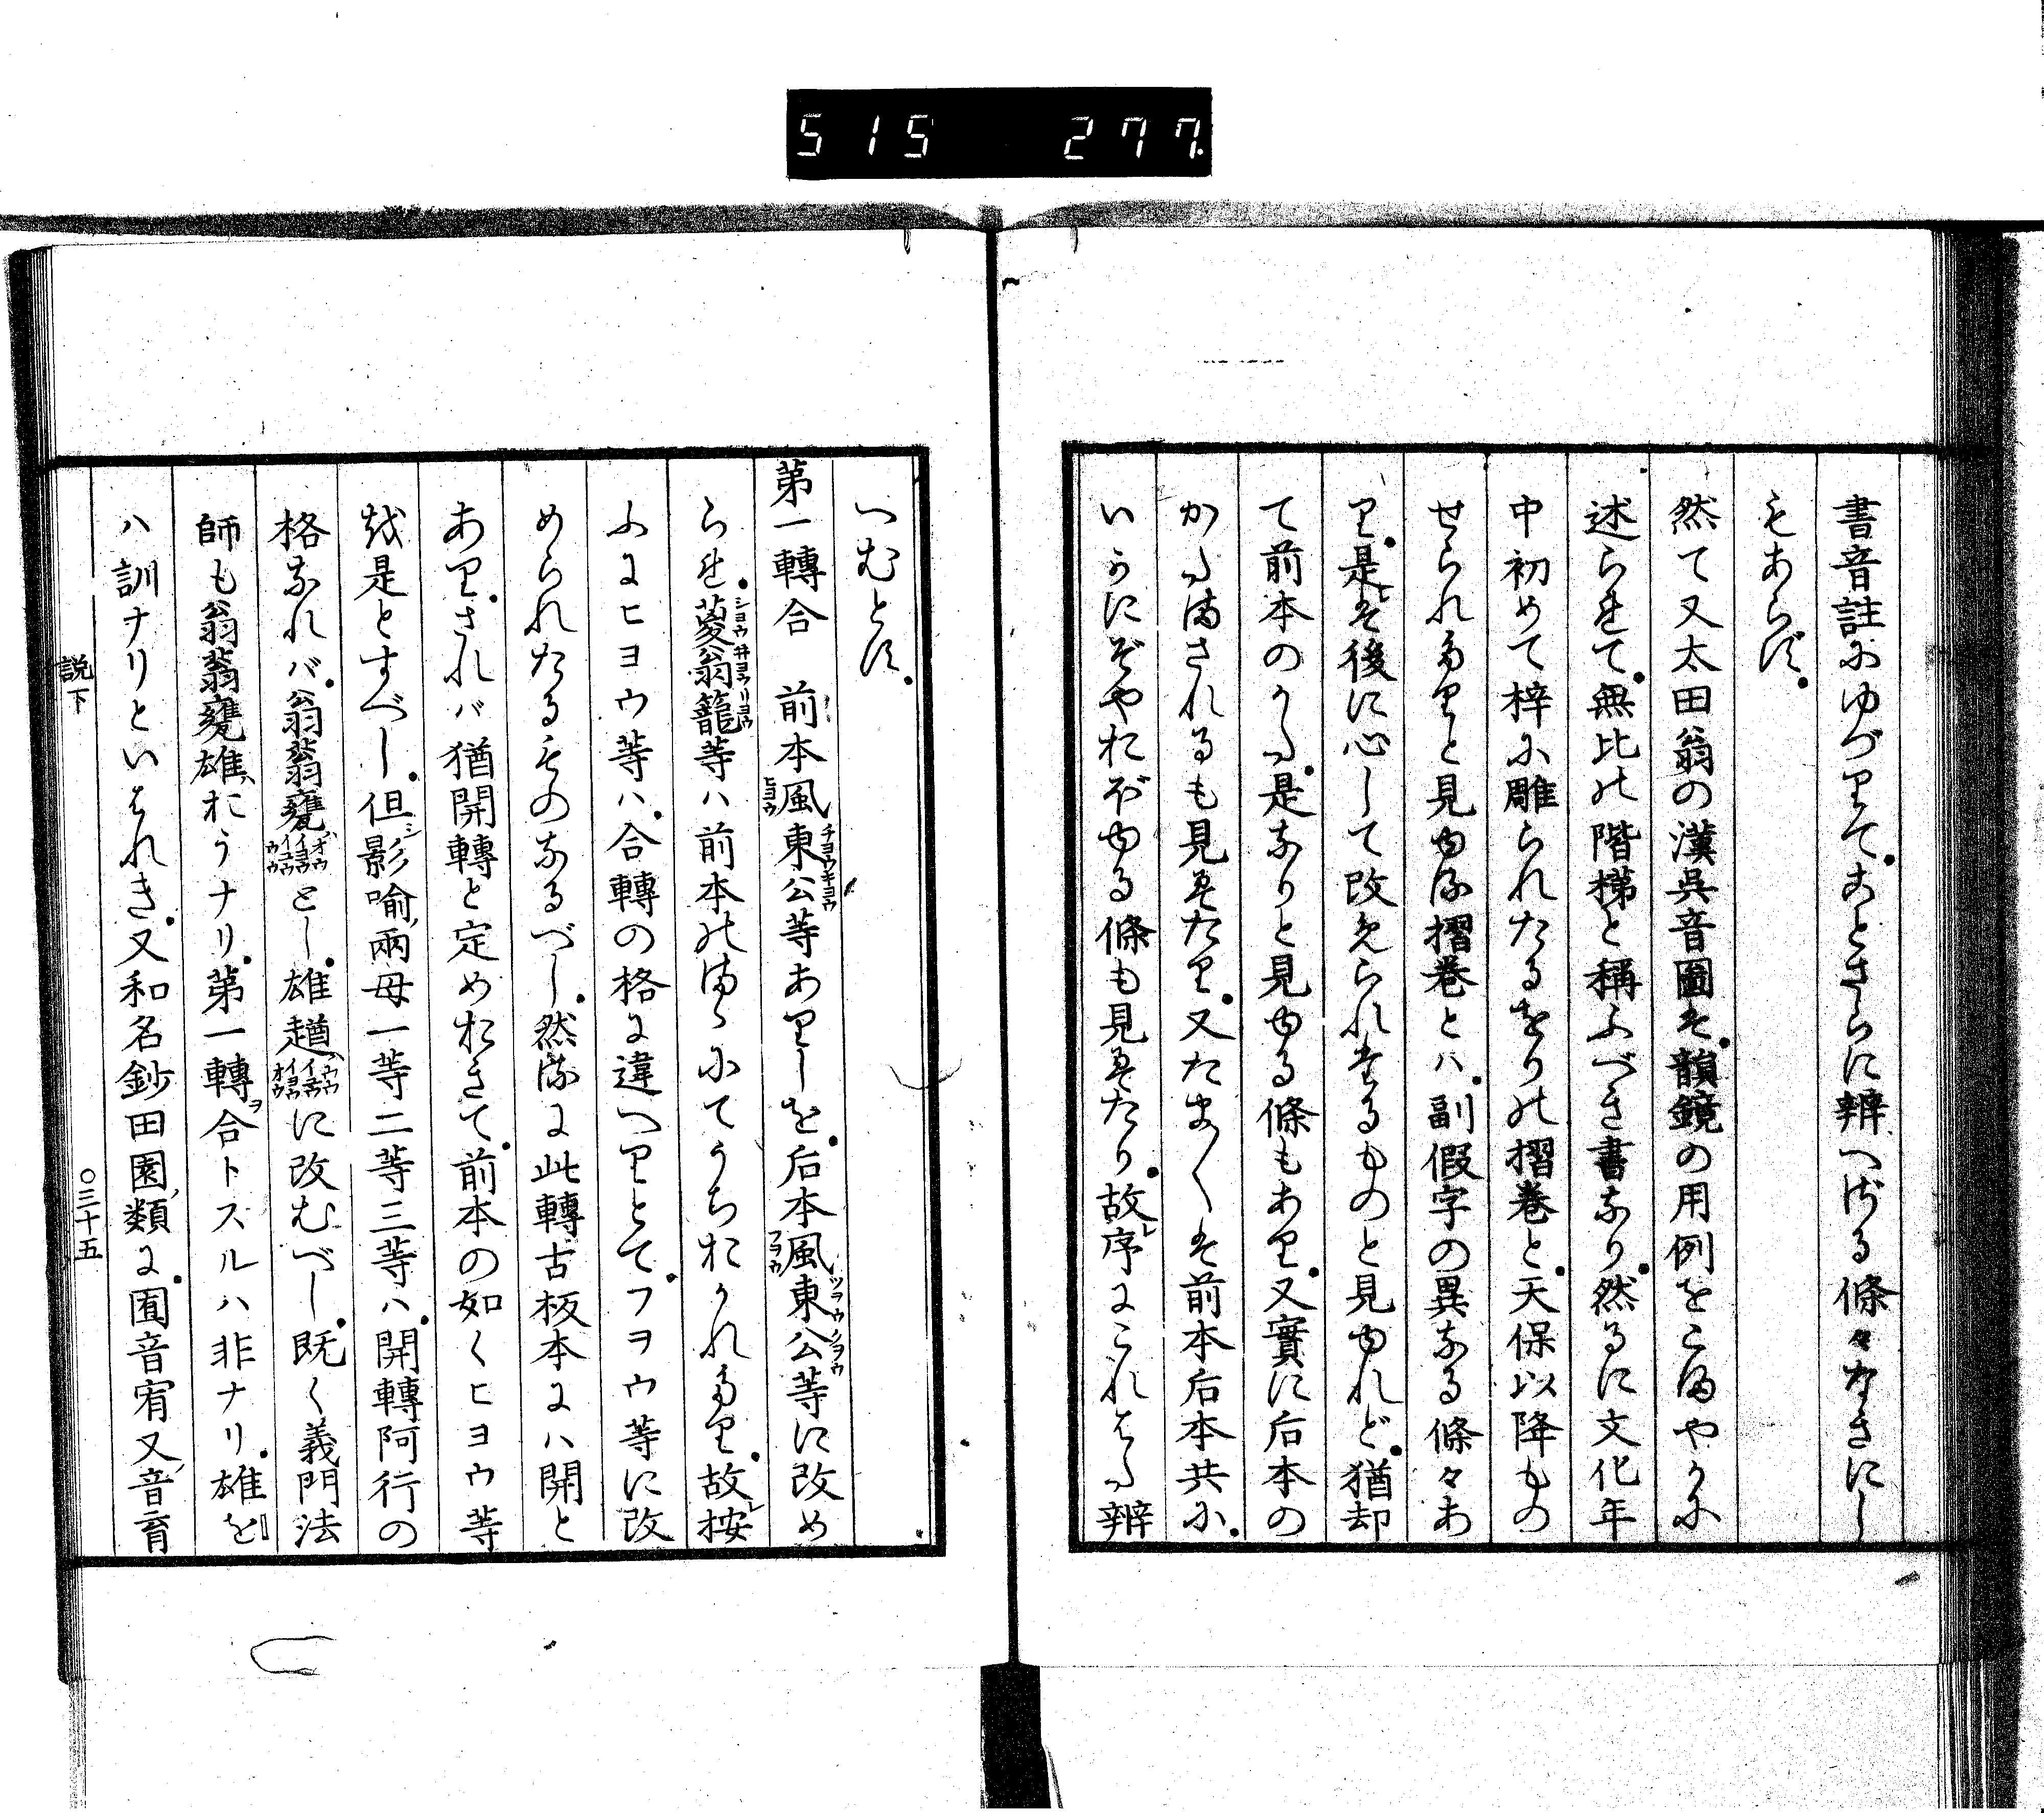 515 277
書音註にゆづりて.ことさらに辨へざる條々なきにし
もあらず.
然て又太田翁の漢呉音圖は.韻鏡の用例をこまやかに
述られて.無比の階梯と稱ふべき書なり.然るに文化年
中初めて梓に雕られたるをりの摺卷と.天保以降もの
せられたりと見ゆる摺卷とハ.副假字の異なる條々あ
り.是は後に心して改えられたるものと見ゆれど.猶却
て前本のかた.是なりと見ゆる條もあり.又實に后本の
かたまされるも見えたり.又たま〱は前本后本共に.
いかにぞやおぼゆる條も見えたり.故序にこれはた辨
へむとす.
第一轉合 前本風ヒヨウ東チヨウ公キヨウ等ありしを.后本風フヲウ東ツヲウ公クヲウ等に改め
られ.蓌シヨウ翁ヰヨウ籠リヨウ等ハ前本のまゝにてうちおかれたり.故按
ふにヒヨウ等ハ.合轉の格に違へりとて.フヲウ等に改
められたるものなるべし.然るに此轉古板本にハ開と
あり.されバ猶開轉と定めおきて.前本の如くヒヨウ等
を是とすべし.但シ影喩兩母一等二等三等ハ.開轉阿行の
格なれバ.翁蓊甕オウイヨウイユウウウとし.雄趥ウウイユウイヨウオウに改むべし.既く義門法
師も翁蓊甕雄ハおうナリ.第一轉ヲ合トスルハ非ナリ.雄を
ハ訓ナリといはれき.又和名鈔田園類に.囿音宥又音育
説下
〇三十五